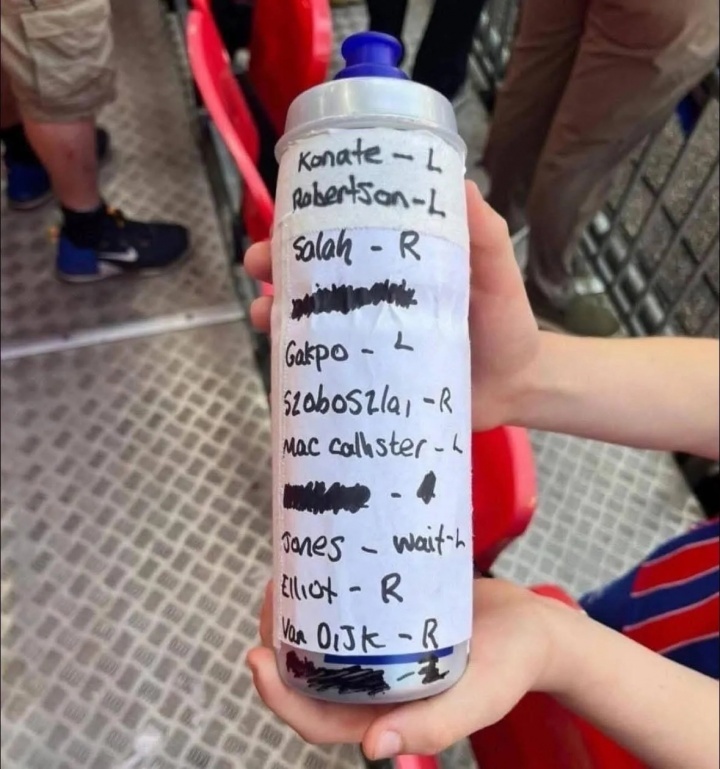 Konate - L
Robertson - L
Salah - R
Gakpo - L
Szoboszlai - R
Mac callister - L
Jones - wait - L
Elliot - R
Van Dijk - R